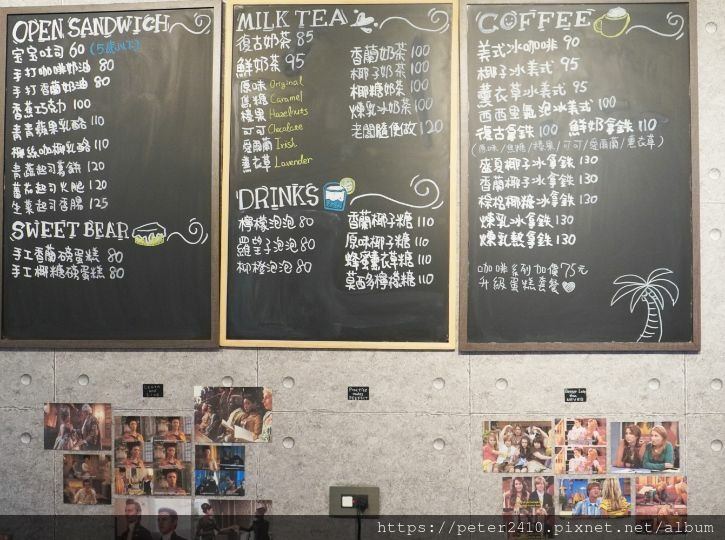 OPEN SANDWICH
宝宝吐司 60 (5歲以下)
手打咖啡奶油 80
手打香蘭奶油 80
香蕉巧克力 100
青青蘋果乳酪 110
椰絲咖椰乳酪 110
青蔬起司薯餅 120
蕃茄起司火腿 120
生菜起司香腸 125
SWEET BEAR
手工香蘭磅蛋糕 80
手工椰糖磅蛋糕 80
MILK TEA
復古奶茶 85
鮮奶茶 95
原味 Original
焦糖 Caramel
榛果 Hazelnuts
可可 Chocolate
愛爾蘭 Irish
薰衣草 Lavender
香蘭奶茶 100
椰子奶茶 100
椰糖奶茶 100
煉乳冰奶茶 100
老闆隨便做 120
DRINKS
檸檬泡泡 80
羅望子泡泡 80
柳橙泡泡 80
香蘭椰子糖 110
原味椰子糖 110
蜂蜜薰衣草糖 110
莫西多檸檬糖 110
COFFEE
美式冰咖啡 90
椰子冰美式 95
薰衣草冰美式 95
西西里氣泡冰美式 100
復古拿鉄 100 鮮奶拿鉄 110
(原味/焦糖/榛果/可可/愛爾蘭/薰衣草)
盛夏椰子冰拿鉄 130
香蘭椰子冰拿鉄 130
棕梠椰糖冰拿鉄 130
煉乳冰拿鉄 130
煉乳熱拿鉄 130
咖啡系列加價75元
升級蛋糕套餐
https://peter2410.pixnet.net/album